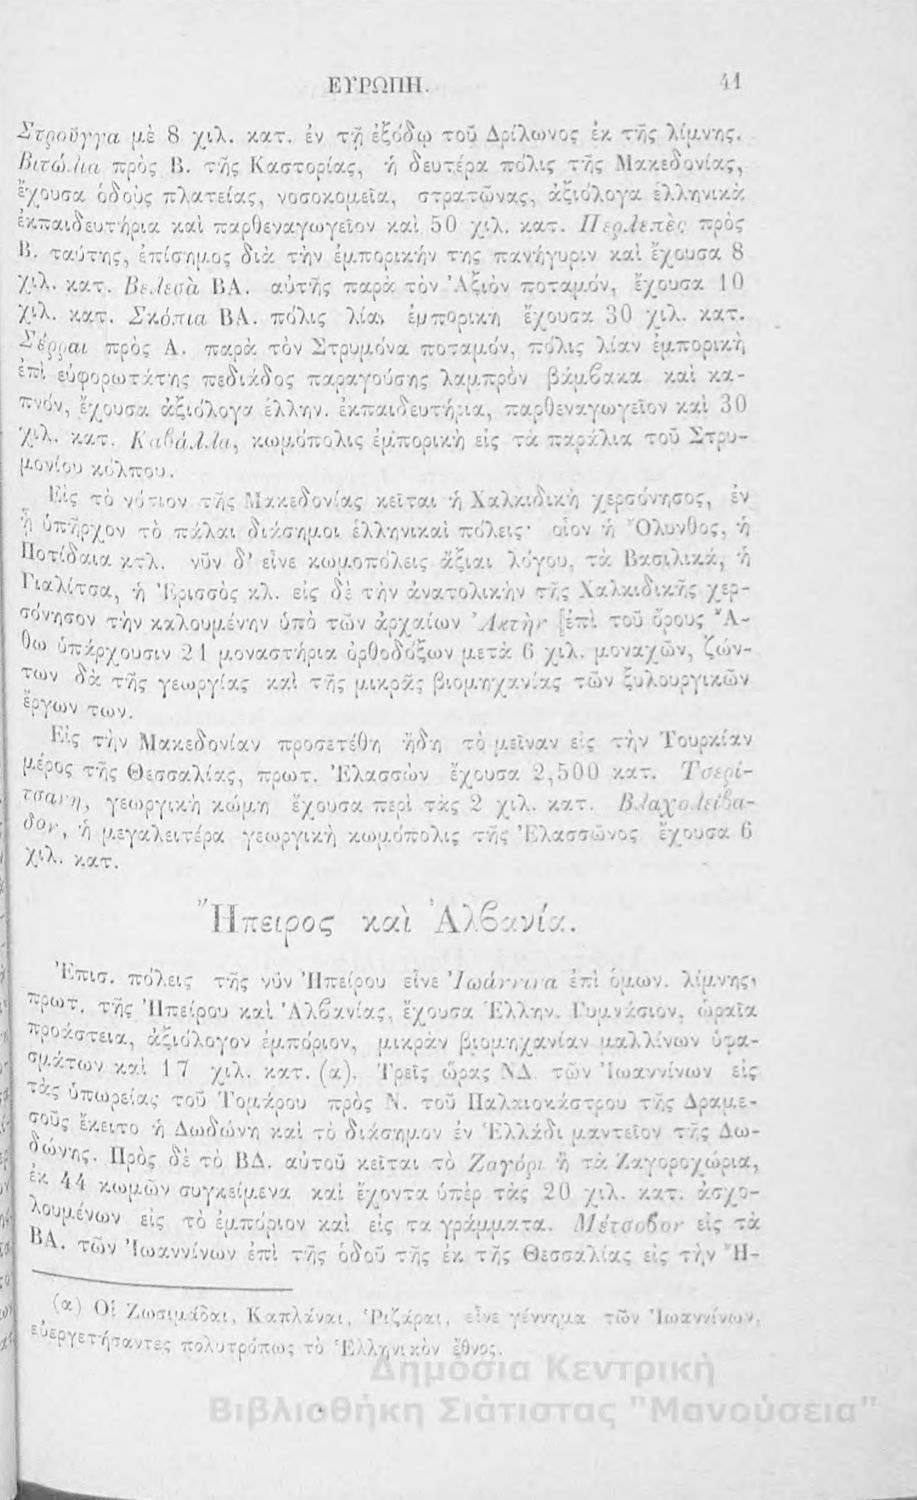 ΕΥΡΩΠΗ. 41
Στρούγγα μὲ 8 χιλ. κατ. ἐν τῇ ἐξόδῳ τοῦ Δρίλωνος ἐκ τῆς λίμνης.
Βιτώλια πρὸς Β. τῆς Καστορίας, ἡ δευτέρα πόλις τῆς Μακεδονίας,
ἔχουσα ὁδοὺς πλατείας, νοσοκομεῖα, στρατῶνας, ἀξιόλογα ἑλληνικὰ
ἐκπαιδευτήρια καὶ παρθεναγωγεῖον καὶ 50 χιλ. κατ. Περλεπὲς πρὸς
Β. ταύτης, ἐπίσημος διὰ τὴν ἐμπορικήν της πανήγυριν καὶ ἔχουσα 8
χιλ. κατ. Βελεσὰ ΒΑ. αὐτῆς παρὰ τὸν Ἀξιὸν ποταμόν, ἔχουσα 10
χιλ. κατ. Σκόπια ΒΑ. πόλις λίαν ἐμπορικὴ ἔχουσα 30 χιλ. κατ.
Σέρραι πρὸς Α. παρὰ τὸν Στρυμόνα ποταμόν, πόλις λίαν ἐμπορικὴ
ἐπὶ εὐφορωτάτης πεδιάδος παραγούσης λαμπρὸν βάμβακα καὶ κα-
πνόν, ἔχουσα ἀξιόλογα ἑλλην. ἐκπαιδευτήρια, παρθεναγωγεῖον καὶ 30
χιλ. κατ. Καβάλλα, κωμόπολις ἐμπορικὴ εἰς τὰ παράλια τοῦ Στρυ-
μονίου κόλπου.
Εἰς τὸ νότιον τῆς Μακεδονίας κεῖται ἡ Χαλκιδικὴ χερσόνησος, ἐν
ᾗ ὑπῆρχον τὸ πάλαι διάσημοι ἑλληνικαὶ πόλεις· οἷον ἡ Ὄλυνθος, ἡ
Ποτίδαια κτλ. νῦν δ' εἶνε κωμοπόλεις ἄξιαι λόγου, τὰ Βασιλικά, ἡ
Γιαλίτσα, ἡ Ἐρισσὸς κλ. εἰς δὲ τὴν ἀνατολικὴν τῆς Χαλκιδικῆς χερ-
σόνησον τὴν καλουμένην ὑπὸ τῶν ἀρχαίων Ἀκτὴν [ἐπὶ τοῦ ὄρους Ἄ-
θω ὑπάρχουσιν 21 μοναστήρια ὀρθοδόξων μετὰ 6 χιλ. μοναχῶν, ζών-
των δὰ τῆς γεωργίας καὶ τῆς μικρᾶς βιομηχανίας τῶν ξυλουργικῶν
ἔργων των.
Εἰς τὴν Μακεδονίαν προσετέθη ἤδη τὸ μεῖναν εἰς τὴν Τουρκίαν
μέρος τῆς Θεσσαλίας, πρωτ. Ἐλασσὼν ἔχουσα 2,500 κατ. Τσερί-
τσανη, γεωργικὴ κώμη ἔχουσα περὶ τὰς 2 χιλ. κατ. Βλαχολείβα-
δον, ἡ μεγαλειτέρα γεωργικὴ κωμόπολις τῆς Ἐλασσῶνος ἔχουσα 6
χιλ. κατ.
Ἤπειρος καὶ Ἀλβανία.
Ἐπισ. πόλεις τῆς νῦν Ἠπείρου εἶνε Ἰωάννινα ἐπὶ ὁμων. λίμνης,
πρωτ. τῆς Ἠπείρου καὶ Ἀλβανίας, ἔχουσα Ἑλλην. Γυμνάσιον, ὡραῖα
προάστεια, ἀξιόλογον ἐμπόριον, μικρὰν βιομηχανίαν μαλλίνων ὑφα-
σμάτων καὶ 17 χιλ. κατ. (α). Τρεῖς ὥρας ΝΔ τῶν Ἰωαννίνων εἰς
τὰς ὑπωρείας τοῦ Τομάρου πρὸς Ν. τοῦ Παλαιοκάστρου τῆς Δραμε-
σοῦς ἔκειτο ἡ Δωδώνη καὶ τὸ διάσημον ἐν Ἑλλάδι μαντεῖον τῆς Δω-
δώνης. Πρὸς δὲ τὸ ΒΔ. αὐτοῦ κεῖται τὸ Ζαγόρι ἢ τὰ Ζαγοροχώρια,
ἐκ 44 κωμῶν συγκείμενα καὶ ἔχοντα ὑπὲρ τὰς 20 χιλ. κατ. ἀσχο-
λουμένων εἰς τὸ ἐμπόριον καὶ εἰς τὰ γράμματα. Μέτσοβον εἰς τὰ
ΒΑ. τῶν Ἰωαννίνων ἐπὶ τῆς ὁδοῦ τῆς ἐκ τῆς Θεσσαλίας εἰς τὴν Ἤ-
(α) Οἱ Ζωσιμάδαι, Καπλάναι, Ῥιζάραι, εἶνε γέννημα τῶν Ἰωαννίνων,
εὐεργετήσαντες πολυτρόπως τὸ Ἑλληνικὸν ἔθνος.
Δημόσια Κεντρική
Βιβλιοθήκη Σιάτιστας "Μανούσεια"